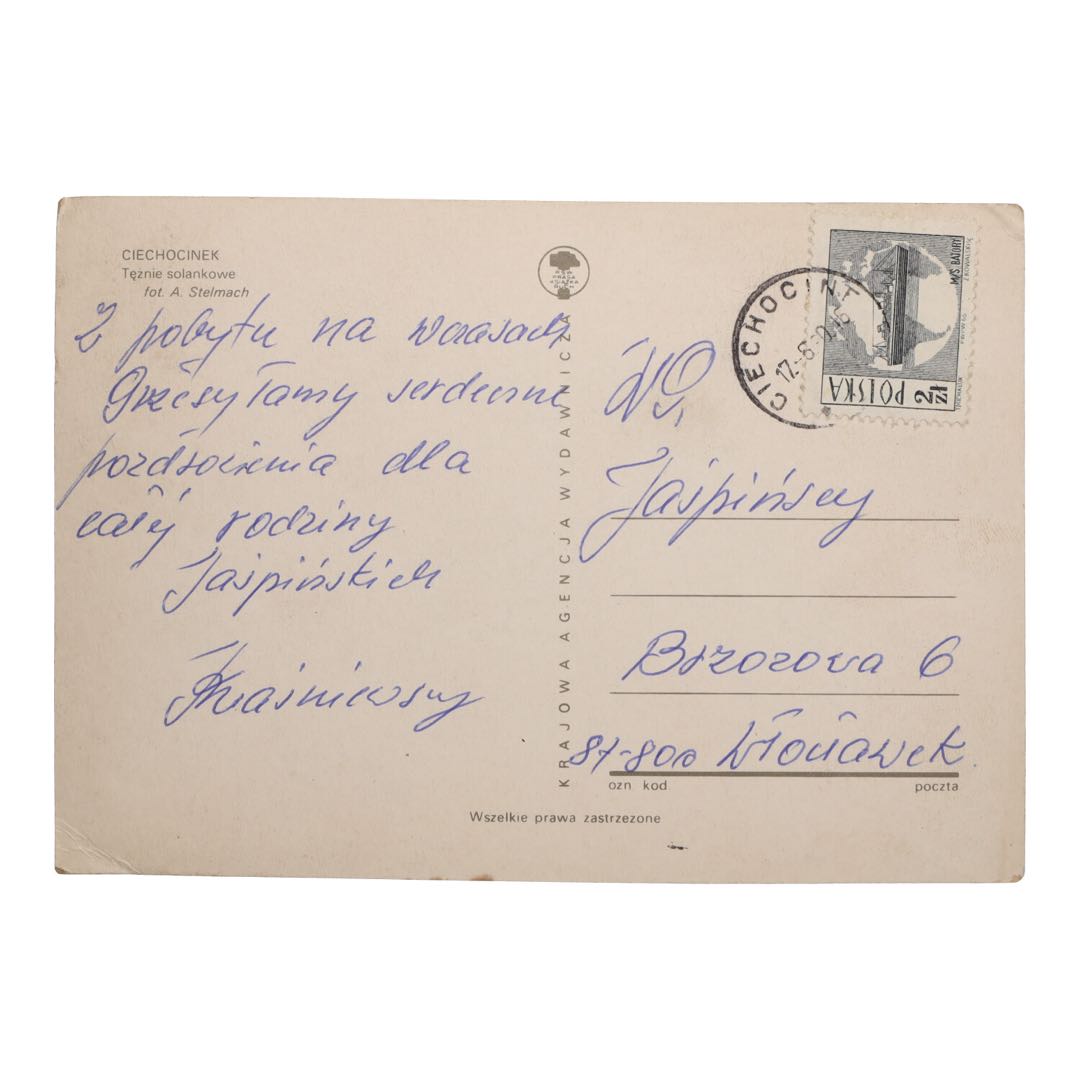 CIECHOCINEK
Tężnie solankowe
fot. A. Stelmach
Z pobytu na wczasach
Przesyłamy serdeczne
pozdrowienia dla
całej rodziny
Jaśpińskich
Kraśniewscy
RSW
PRASA
KSIĄŻKA
RUCH
KRAJOWA AGENCJA WYDAWNICZA
CIECHOCIN
17.-8
M/S. BATORY
POLSKA
2 zł
W.P.
Jaśpińscy
Brzozowa 6
87-800 Włocławek
ozn. kod. poczta
Wszelkie prawa zastrzeżone